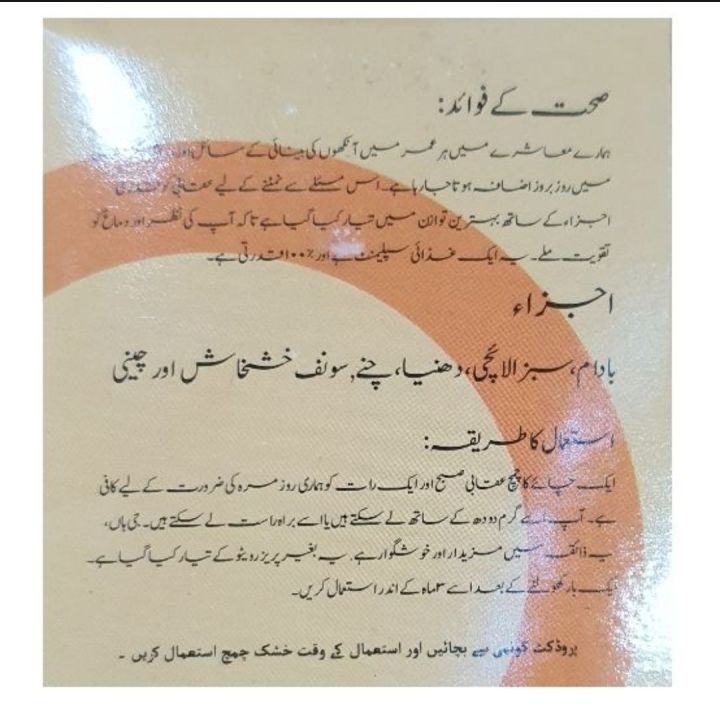 صحت کے فوائد:
ہمارے معاشرے میں ہر عمر میں آنکھوں کی بینائی کے مسائل اور
میں روز بروز اضافہ ہوتا جارہا ہے۔ اس مسئلے سے نمٹنے کے لیے عقابی کو قدرتی
اجزاء کے ساتھ بہترین توازن میں تیار کیا گیا ہے تاکہ آپ کی نظر اور دماغ کو
تقویت ملے۔ یہ ایک غذائی سپلیمنٹ ہے اور ۱۰۰٪ قدرتی ہے۔
اجزاء
بادام، سبز الائچی، دھنیا، چنے, سونف خشخاش اور چینی
استعمال کا طریقہ:
ایک چائے کا چمچ عقابی صبح اور ایک رات کو ہماری روز مرہ کی ضرورت کے لیے کافی
ہے۔ آپ اسے گرم دودھ کے ساتھ لے سکتے ہیں یا اسے براہ راست لے سکتے ہیں۔ جی ہاں،
یہ ذائقہ میں مزیدار اور خوشگوار ہے۔ یہ بغیر پریزرویٹو کے تیار کیا گیا ہے۔
ایک بار کھولنے کے بعد اسے ۳ماہ کے اندر استعمال کریں۔
پروڈکٹ کو نمی سے بچائیں اور استعمال کے وقت خشک چمچ استعمال کریں ۔